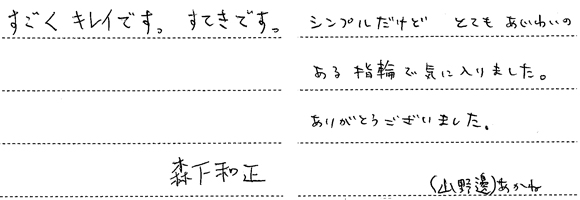 すごく キレイです。 すてきです。
森下和正
シンプルだけど とても あじわいの
ある 指輪で気に入りました。
ありがとうございました。
(山野邊)あかね